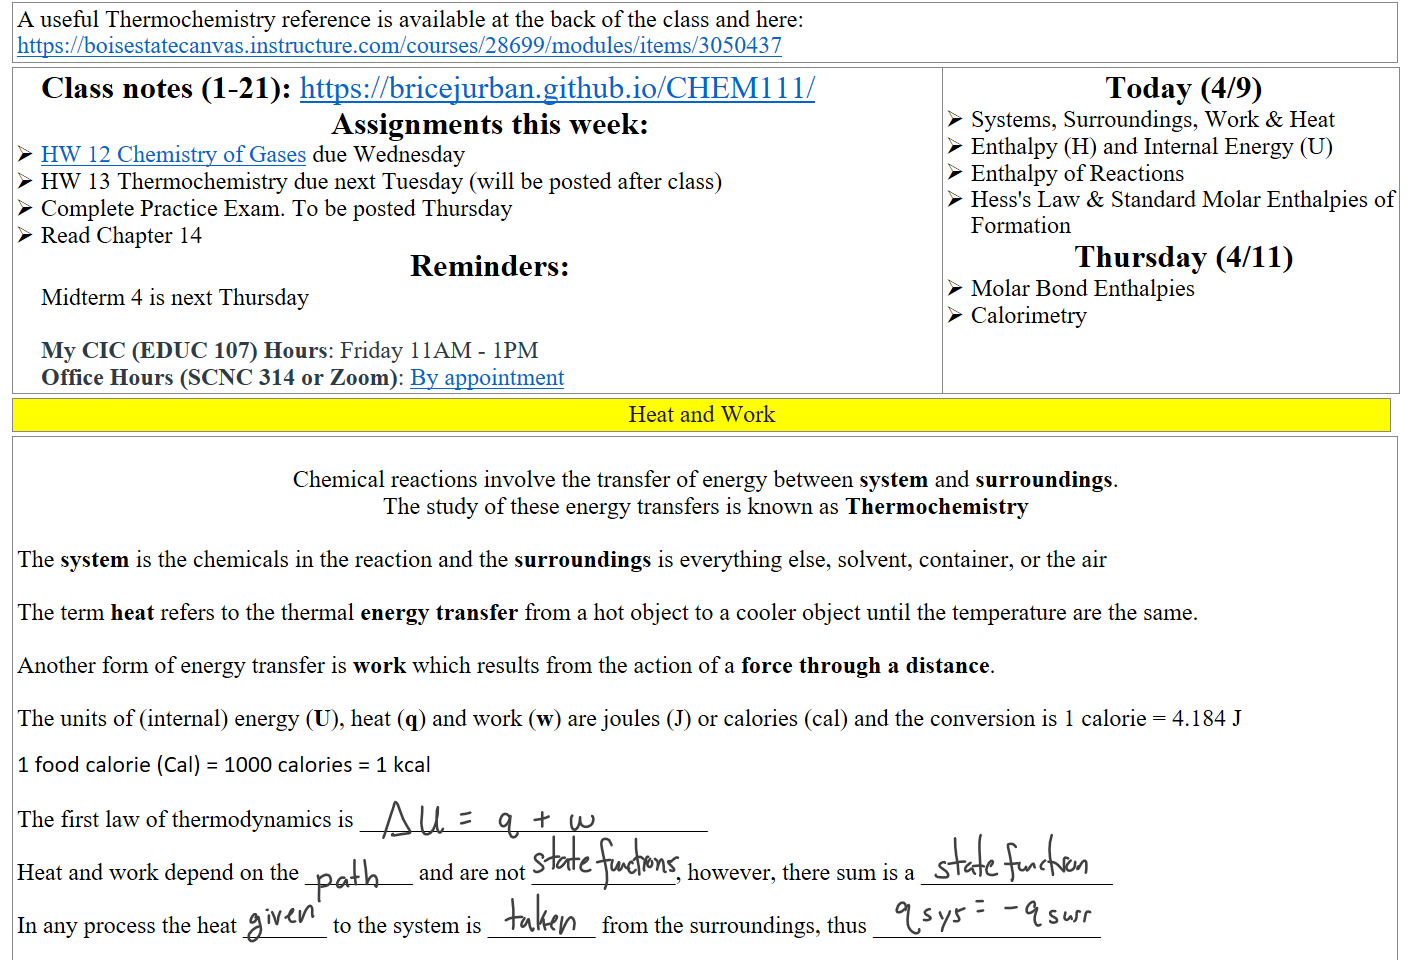 A useful Thermochemistry reference is available at the back of the class and here:
https://boisestatecanvas.instructure.com/courses/28699/modules/items/3050437
Class notes (1-21): https://bricejurban.github.io/CHEM111/
Assignments this week:
➢ HW 12 Chemistry of Gases due Wednesday
➢ HW 13 Thermochemistry due next Tuesday (will be posted after class)
➢ Complete Practice Exam. To be posted Thursday
➢ Read Chapter 14
Reminders:
Midterm 4 is next Thursday
My CIC (EDUC 107) Hours: Friday 11AM - 1PM
Office Hours (SCNC 314 or Zoom): By appointment
Today (4/9)
➢ Systems, Surroundings, Work & Heat
➢ Enthalpy (H) and Internal Energy (U)
➢ Enthalpy of Reactions
➢ Hess's Law & Standard Molar Enthalpies of
Formation
Thursday (4/11)
➢ Molar Bond Enthalpies
➢ Calorimetry
Heat and Work
Chemical reactions involve the transfer of energy between system and surroundings.
The study of these energy transfers is known as Thermochemistry
The system is the chemicals in the reaction and the surroundings is everything else, solvent, container, or the air
The term heat refers to the thermal energy transfer from a hot object to a cooler object until the temperature are the same.
Another form of energy transfer is work which results from the action of a force through a distance.
The units of (internal) energy (U), heat (q) and work (w) are joules (J) or calories (cal) and the conversion is 1 calorie = 4.184 J
1 food calorie (Cal) = 1000 calories = 1 kcal
The first law of thermodynamics is ΔU = q + w
Heat and work depend on the path and are not state functions, however, there sum is a state function
In any process the heat given to the system is taken from the surroundings, thus q sys = -q surr